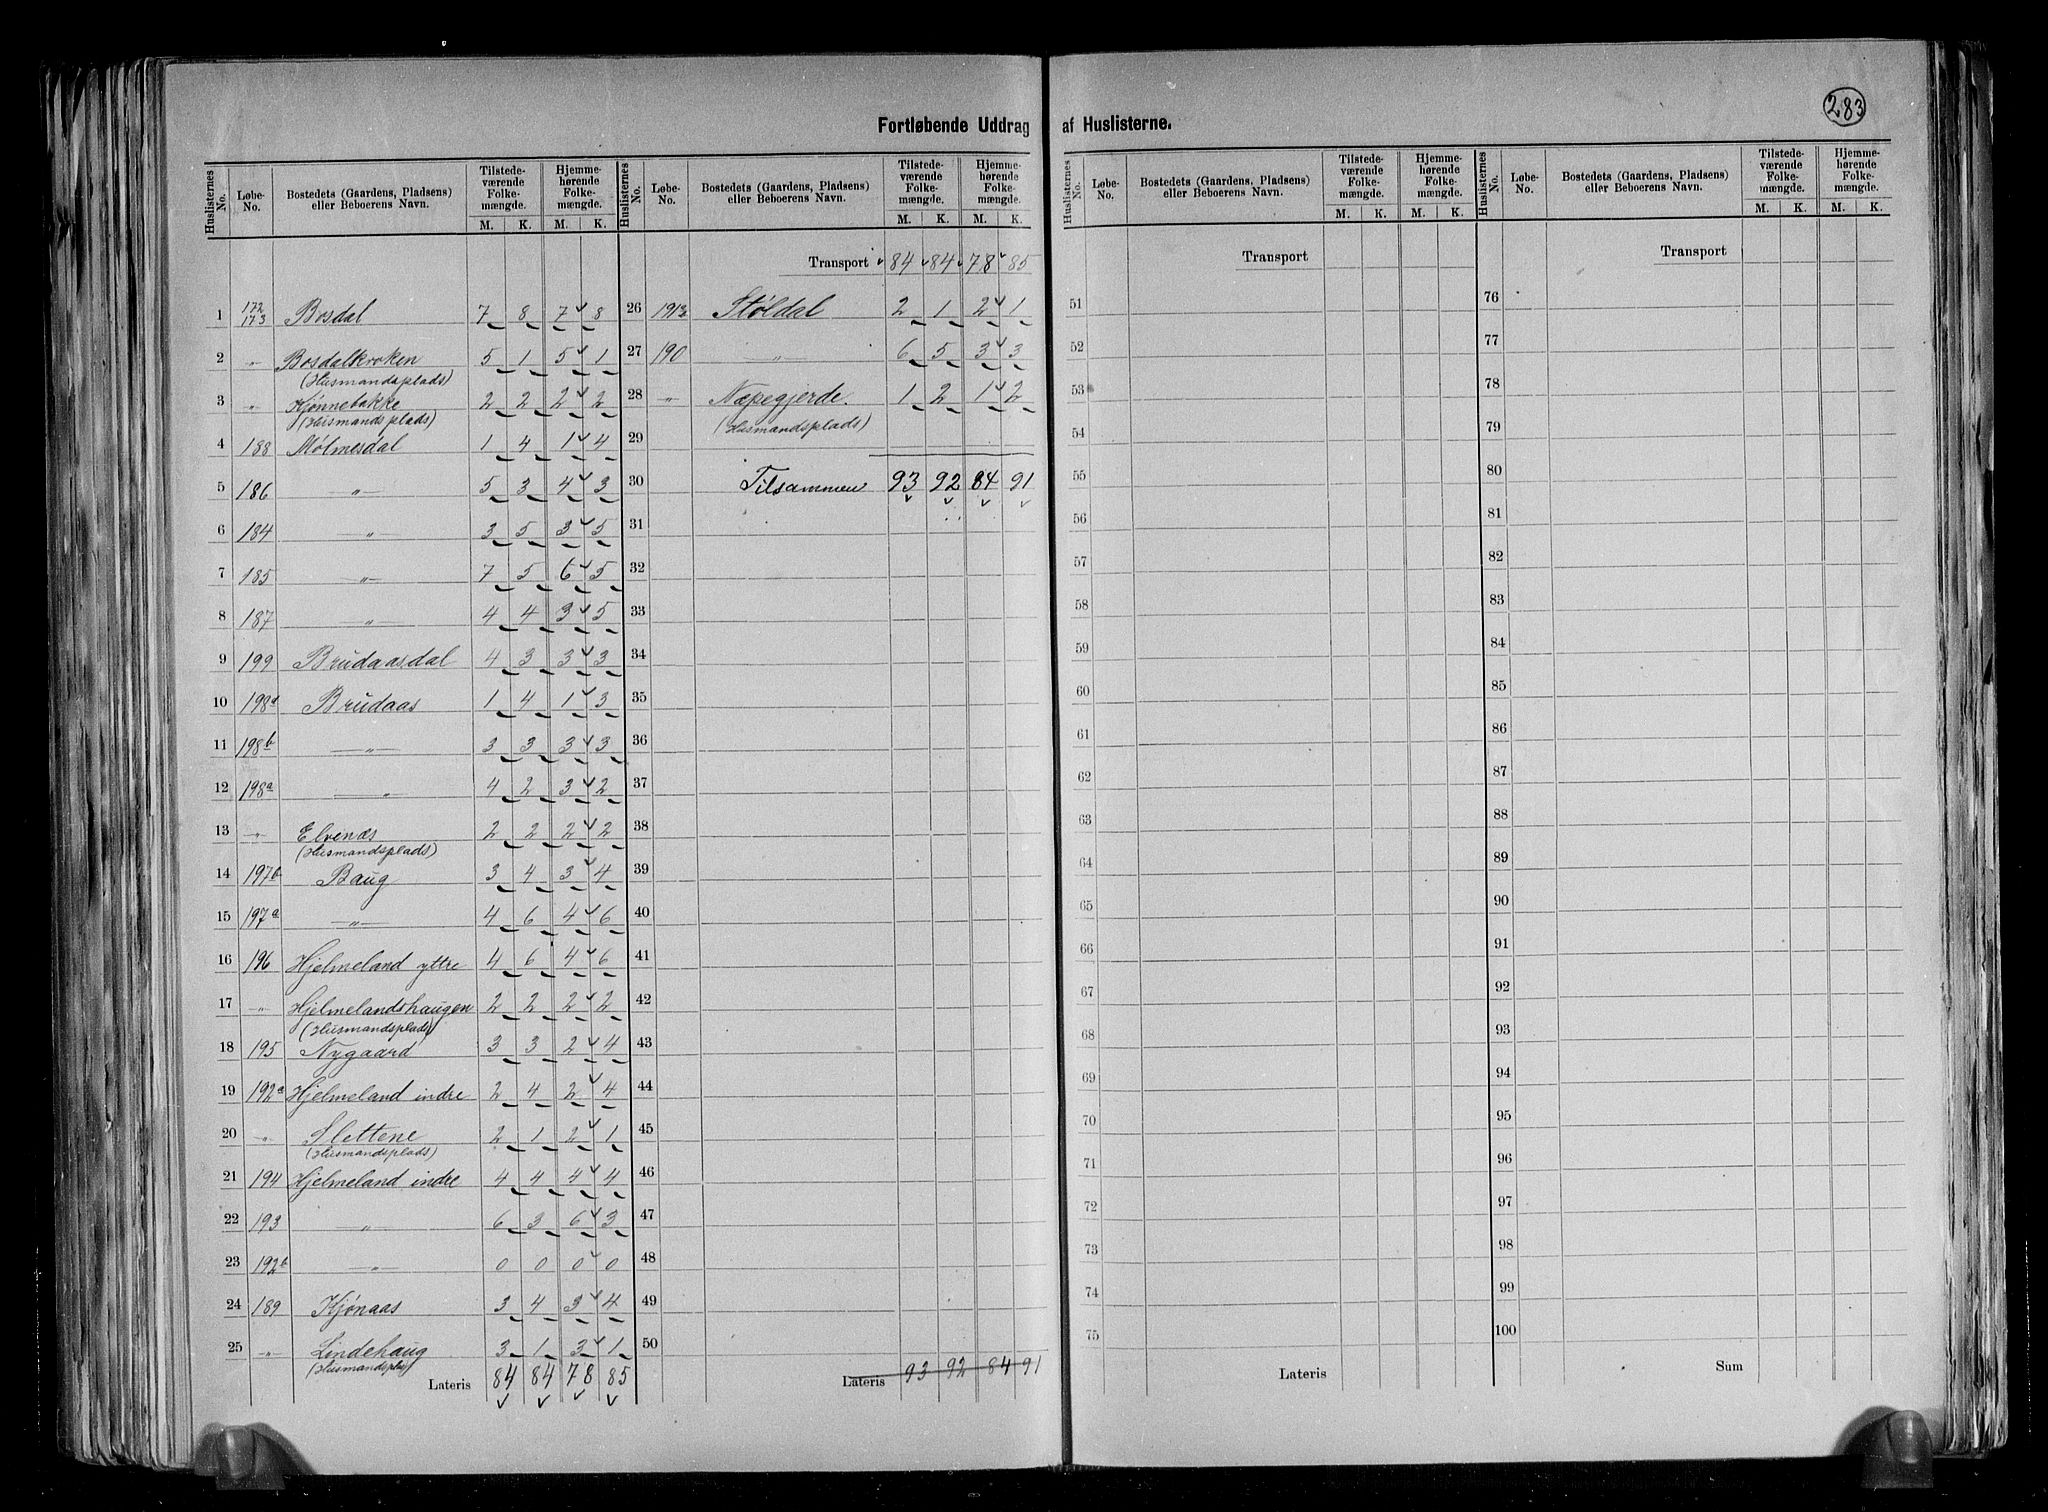 283
Fortløbende Uddrag af Huslisterne.
Huslisternes No. Løbe-No. Bostedets (Gaardens, Pladsens) eller Beboerens Navn. Tilstede-værende Folke-mængde. M. K. Hjemme-hørende Folke-mængde. M. K.
1 172 173 Bosdal 7 8 7 8
2 " Bosdalkroken 5 1 5 1
(Husmandsplads)
3 " Kjønnebakke 2 2 2 2
(Husmandsplads)
4 188 Mølmesdal 1 4 1 4
5 186 " 5 3 4 3
6 184 " 3 5 3 5
7 185 " 7 5 6 5
8 187 " 4 4 3 5
9 199 Brudaasdal 4 3 3 3
10 198d Brudaas 1 4 1 3
11 198b " 3 3 3 3
12 198a " 4 2 3 2
13 " Elvenæs 2 2 2 2
(Husmandsplads)
14 197b Baug 3 4 3 4
15 197a " 4 6 4 6
16 196 Hjelmeland yttre 4 6 4 6
17 " Hjelmelandshaugen 2 2 2 2
(Husmandsplads)
18 195 Nygaard 3 3 2 4
19 192a Hjelmeland indre 2 4 2 4
20 " Slettene 2 1 2 1
(Husmandsplads)
21 194 Hjelmeland indre 4 4 4 4
22 193 " 6 3 6 3
23 192b " 0 0 0 0
24 189 Kjønaas 3 4 3 4
25 " Lindehaug 3 1 3 1
(Husmandsplds)
Lateris 84 84 78 85
Huslisternes No. Løbe-No. Bostedets (Gaardens, Pladsens) eller Beboerens Navn. Tilstede-værende Folke-mængde. M. K. Hjemme-hørende Folke-mængde. M. K.
Transport 84 84 78 85
26 191 Støldal 2 1 2 1
27 190 " 6 5 3 3
28 " Næpegjerde. 1 2 1 2
(Husmandsplads)
29
30 Tilsammen 93 92 84 91
31
32
33
34
35
36
37
38
39
40
41
42
43
44
45
46
47
48
49
50
Lateris 93 92 84 91
Huslisternes No. Løbe-No. Bostedets (Gaardens, Pladsens) eller Beboerens Navn. Tilstede-værende Folke-mængde. M. K. Hjemme-hørende Folke-mængde. M. K.
Transport
51
52
53
54
55
56
57
58
59
60
61
62
63
64
65
66
67
68
69
70
71
72
73
74
75
Lateris
Huslisternes No. Løbe-No. Bostedets (Gaardens, Pladsens) eller Beboerens Navn. Tilstede-værende Folke-mængde. M. K. Hjemme-hørende Folke-mængde. M. K.
Transport
76
77
78
79
80
81
82
83
84
85
86
87
88
89
90
91
92
93
94
95
96
97
98
99
100
Sum